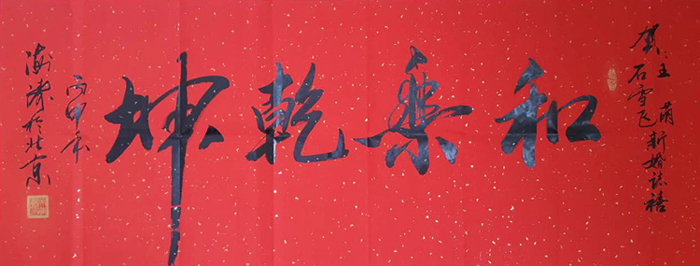 贺
王萌
石雪飞
新婚誌禧
和樂乾坤
丙申年
海涛於北京